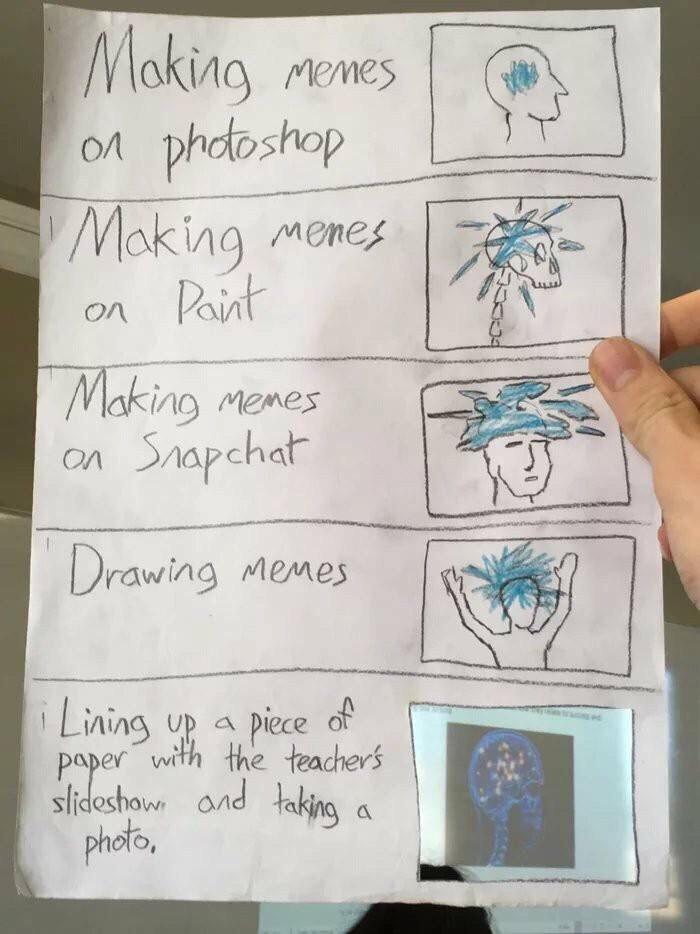 Making memes
on photoshop
Making memes
on Paint
Making memes
on Snapchat
Drawing memes
Lining up a piece of
paper with the teacher's
slideshow and taking a
photo.